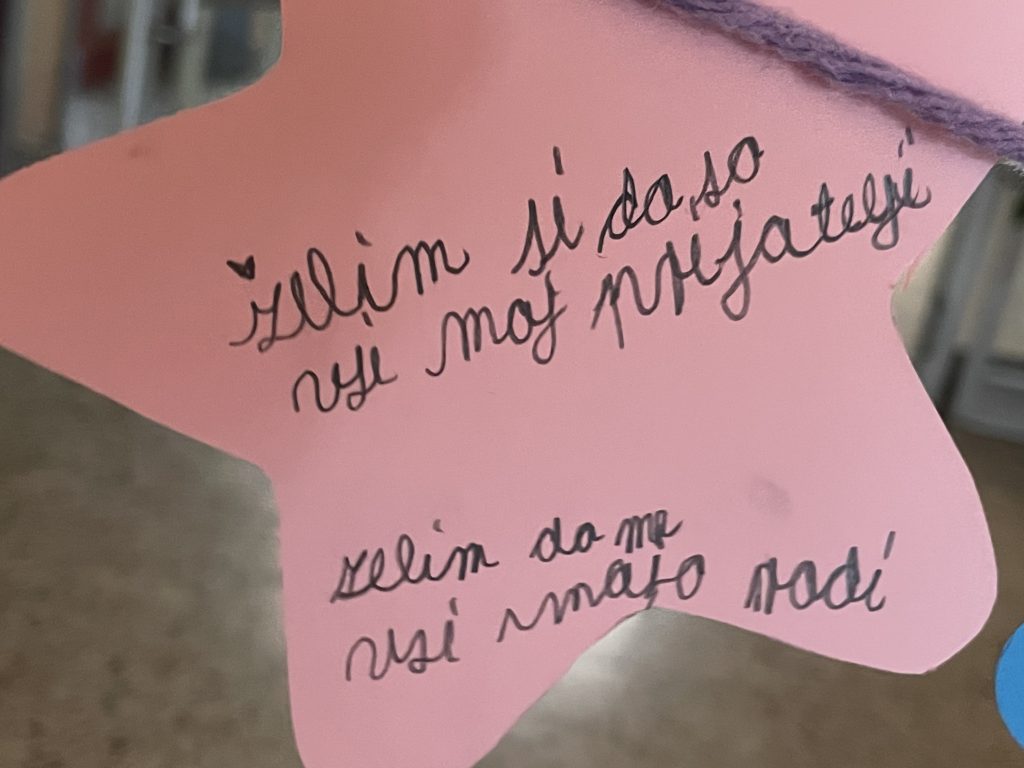 Želim si da so
vsi moj prijatelji
želim da me
vsi imajo radi